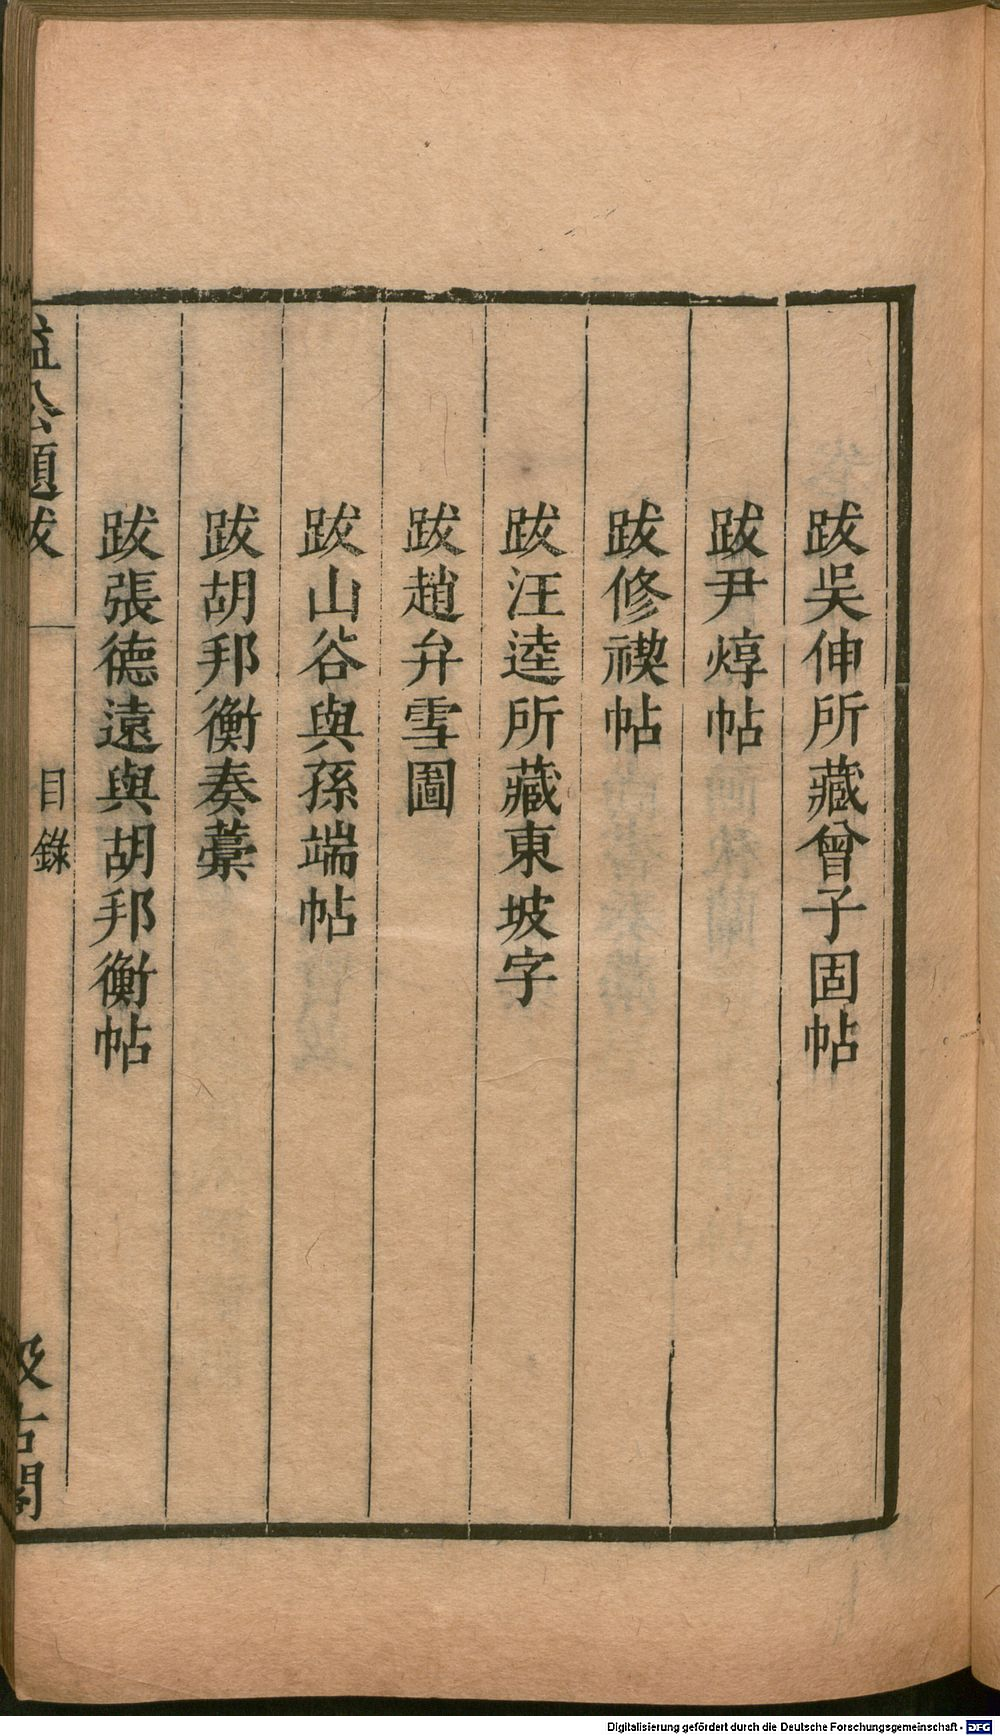 跋吳伸所藏曾子固帖
跋尹焞帖
跋修禊帖
跋汪逵所藏東坡字
跋趙弁雪圖
跋山谷與孫端帖
跋胡邦衡奏藁
跋張德遠與胡邦衡帖
益公題跋
目錄
汲古閣
Digitalisierung gefördert durch die Deutsche Forschungsgemeinschaft - DFG